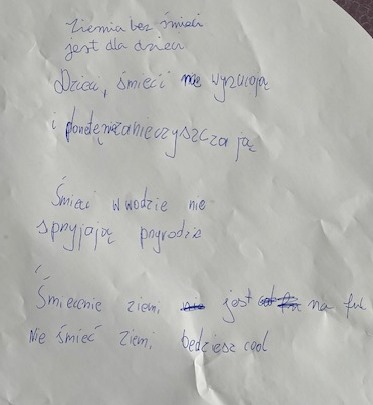 Ziemia bez śmieci
jest dla dzieci
Dzieci, śmieci nie wyrzucają
i planetę nie zanieczyszczają
Śmieci w wodzie nie
spryjają przyrodzie
Śmiecenie ziemi jest na full
Nie śmieć ziemi będziesz cool